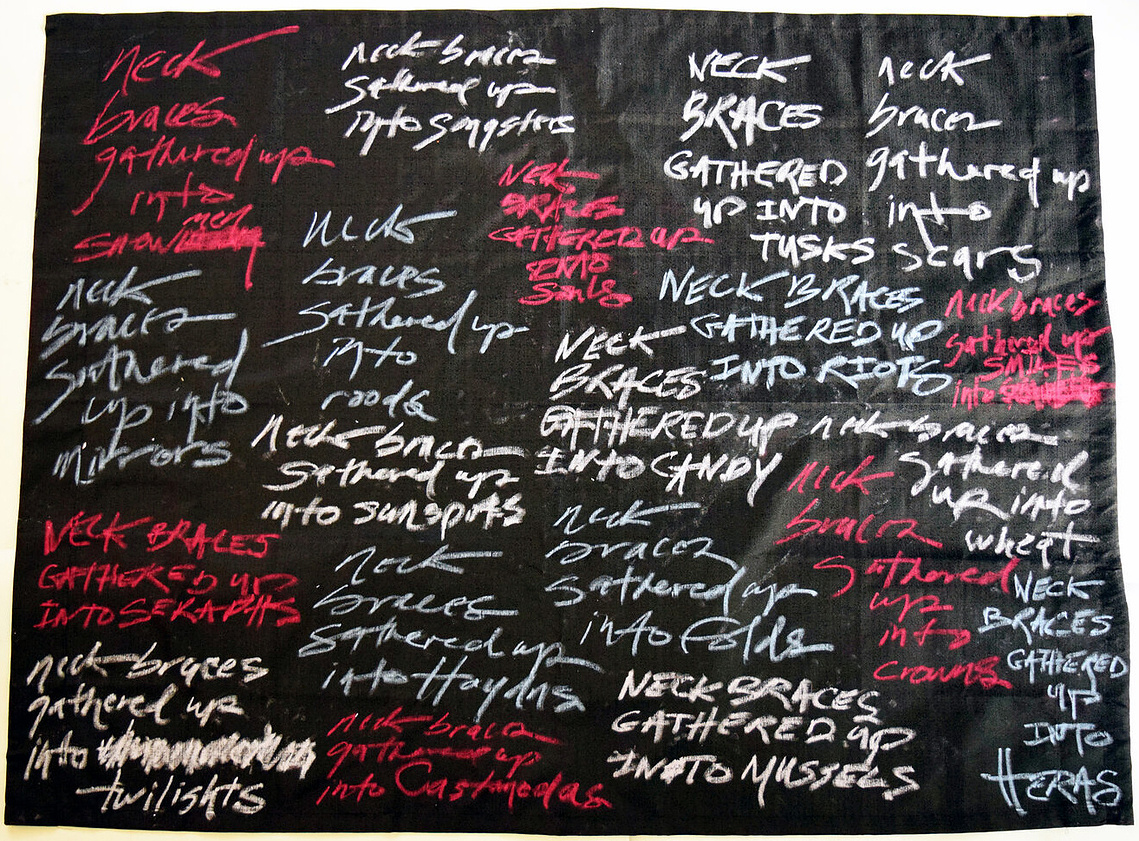 neck
braces
gathered up
into
men
snow
neck braces
gathered up
into songsters
NECK
BRACES
GATHERED
UP INTO
TUSKS
neck
braces
gathered up
into
scars
NECK
BRACES
GATHERED UP
INTO
neck
braces
gathered up
into
roads
neck
braces
gathered
up into
mirrors
NECK BRACES
GATHERED UP
INTO RIOTS
neck braces
gathered up
into
NECK
BRACES
GATHERED UP
INTO CANDY
neck braces
gathered up
into sunspots
neck braces
gathered
up into
wheat
neck
braces
gathered
up
into
crowns
NECK BRACES
GATHERED UP
INTO SERAPHS
neck
braces
gathered up
into Haydns
neck
braces
gathered up
into folds
NECK
BRACES
GATHERED
UP
INTO
HERAS
neck braces
gathered up
into
twilights
neck braces
gathered up
into Castanedas
NECK BRACES
GATHERED up
INTO MUSSELS